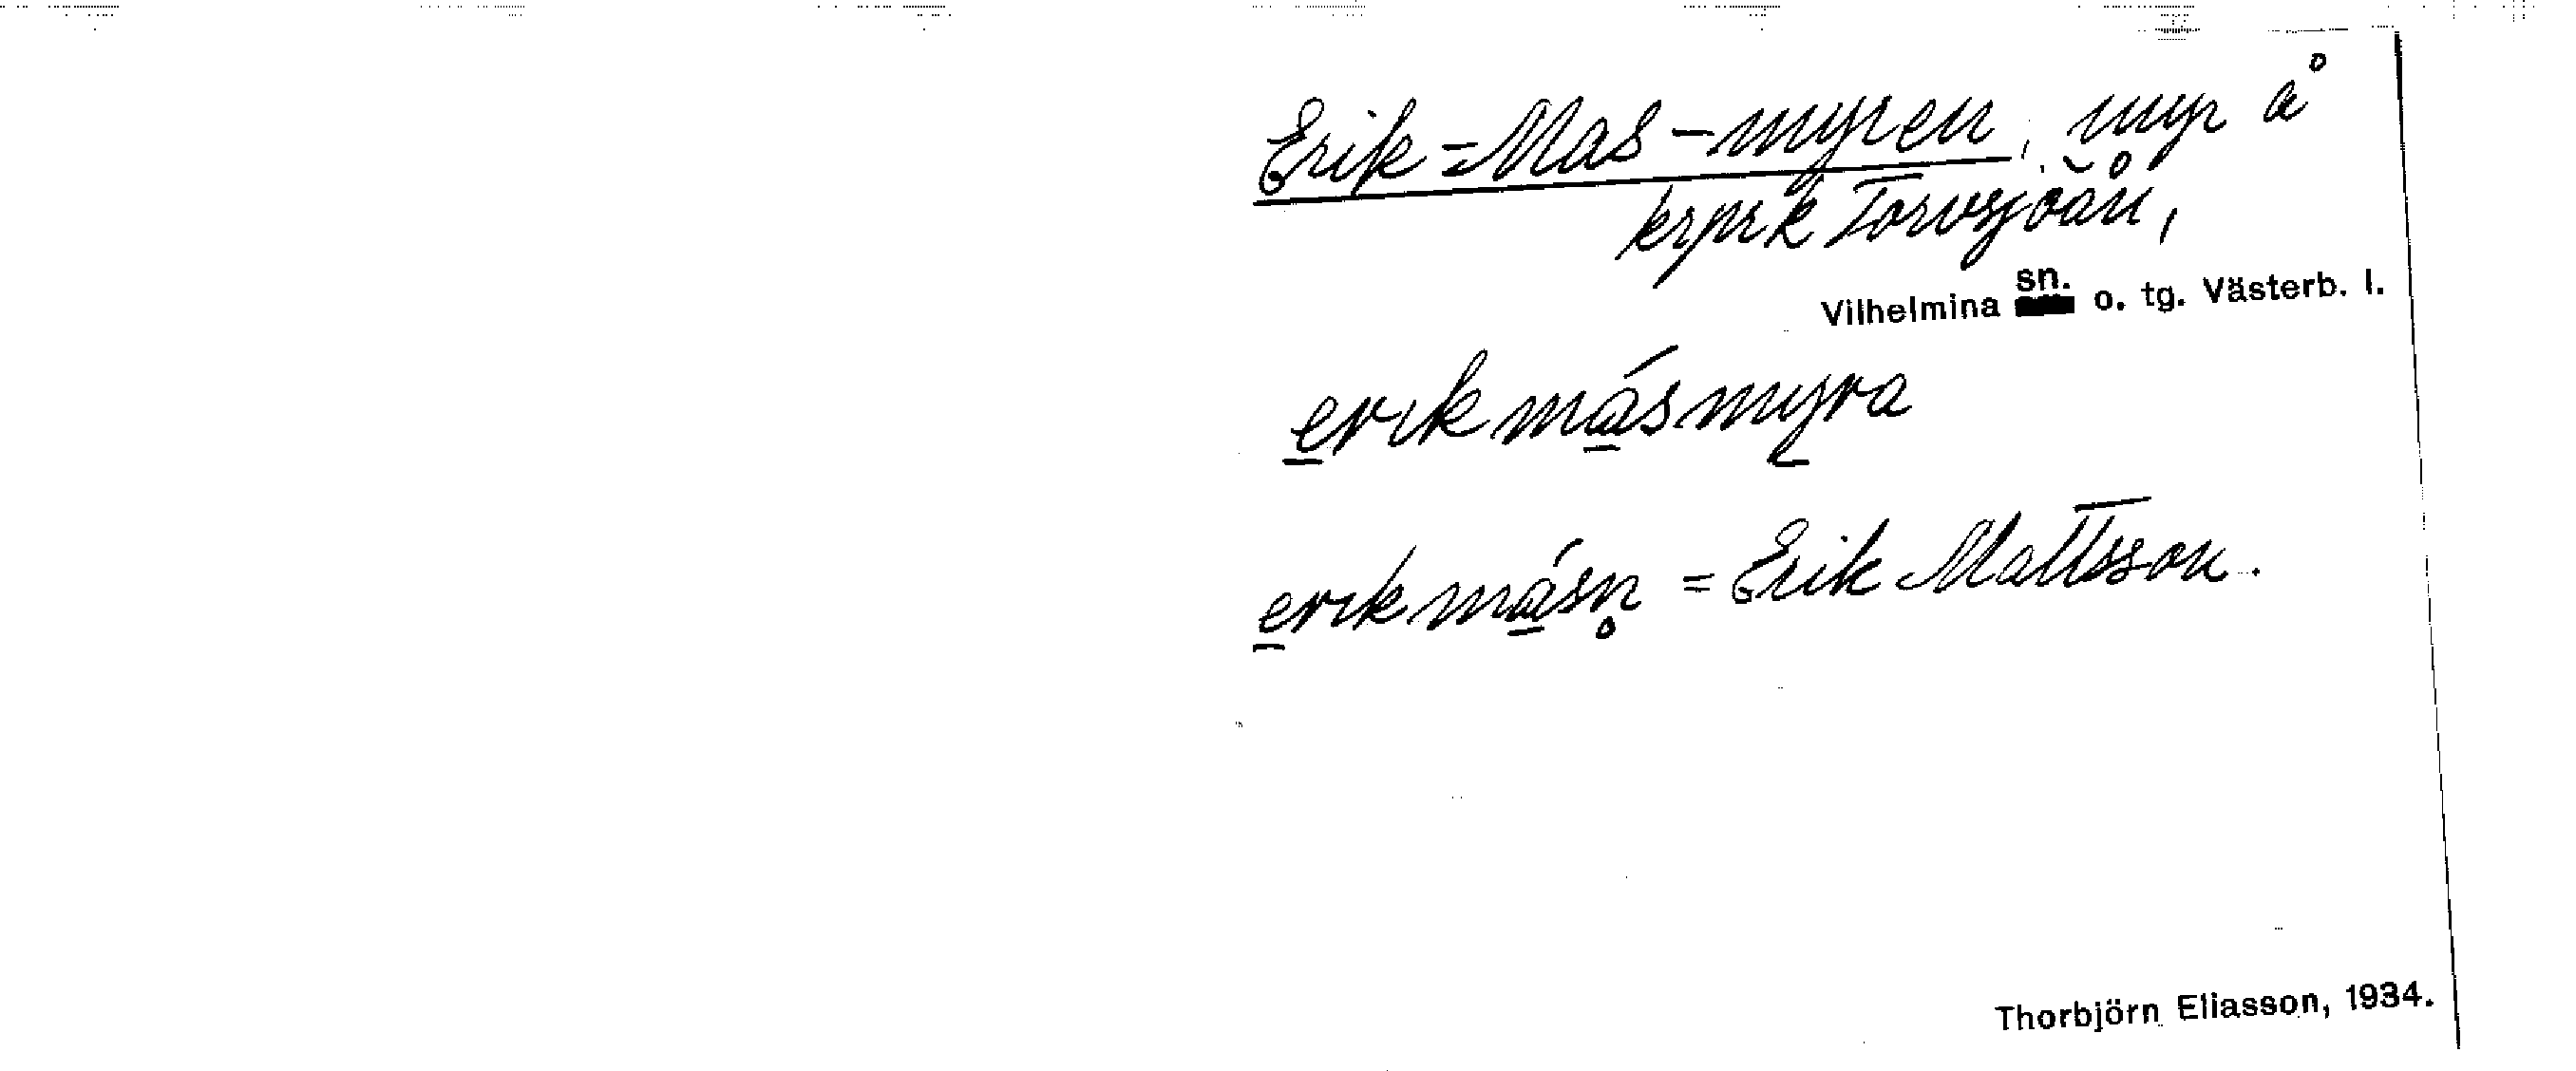 Erik=Mas-myren, myr å
krprk Torvsjöån,
Vilhelmina sn. o. tg. Västerb. l.
erikmásmyra
erikmásn̥ = Erik Mattsson.
Thorbjörn Eliasson, 1934.